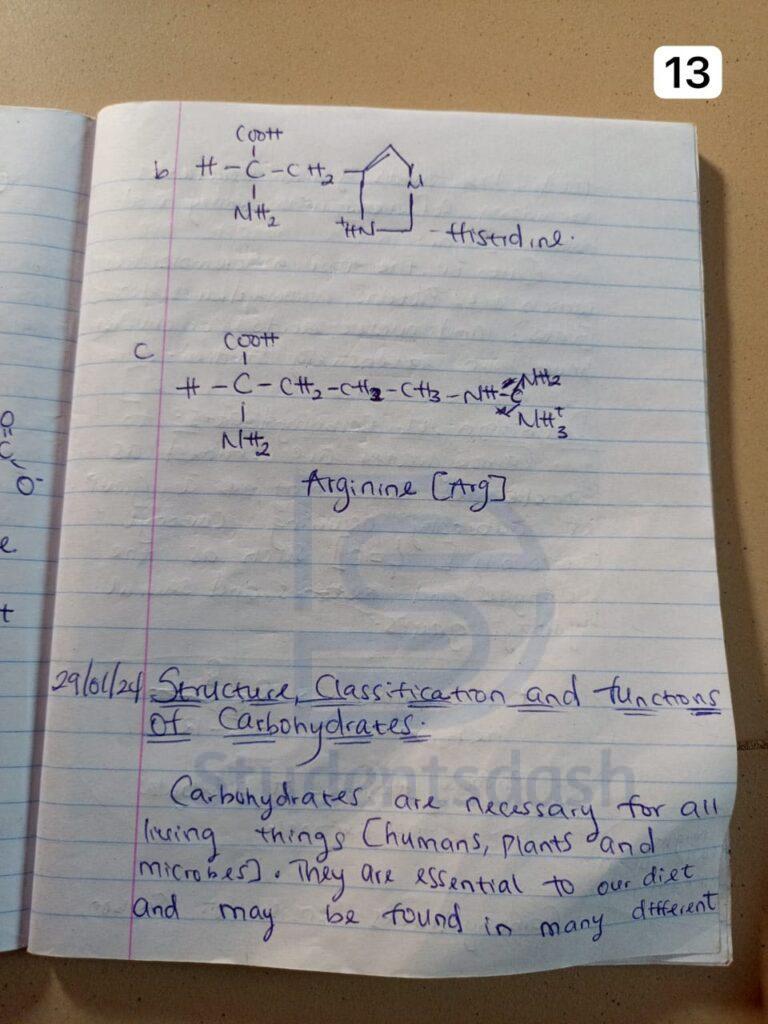 13
COOH
b H - C - CH2
NH2
N
+HN
- Histidine.
COOH
C
H - C - CH2 - CH2 - CH3 - NH - C
NH2
NH3+
NH2
Arginine [Arg]
O
C
O-
e
t
29/01/24 Structure, Classification and functions
of Carbohydrates.
Studentsdash
Carbohydrates are necessary for all
living things [humans, plants and
microbes]. They are essential to our diet
and may be found in many different